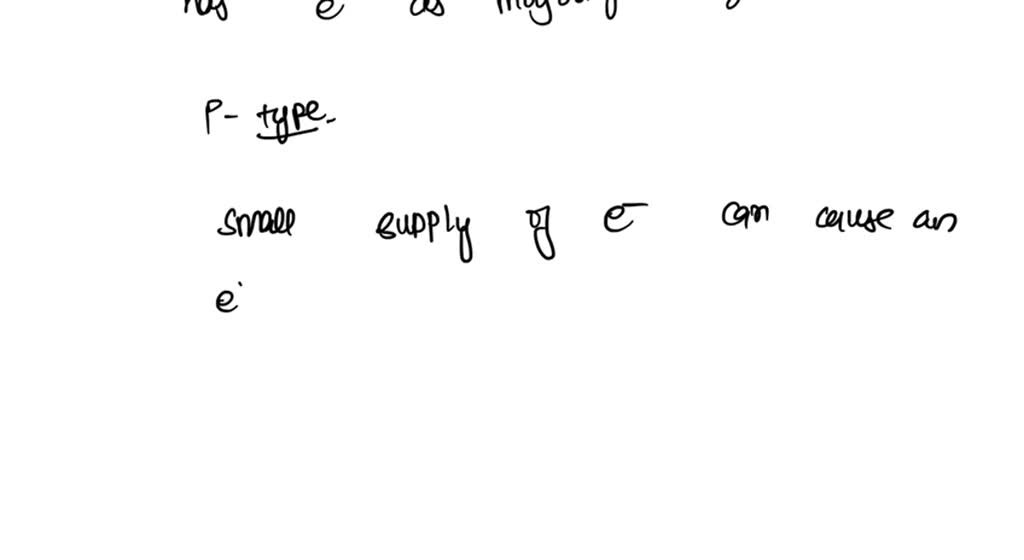 has e as
P- type.
small supply of e- can cause an
e